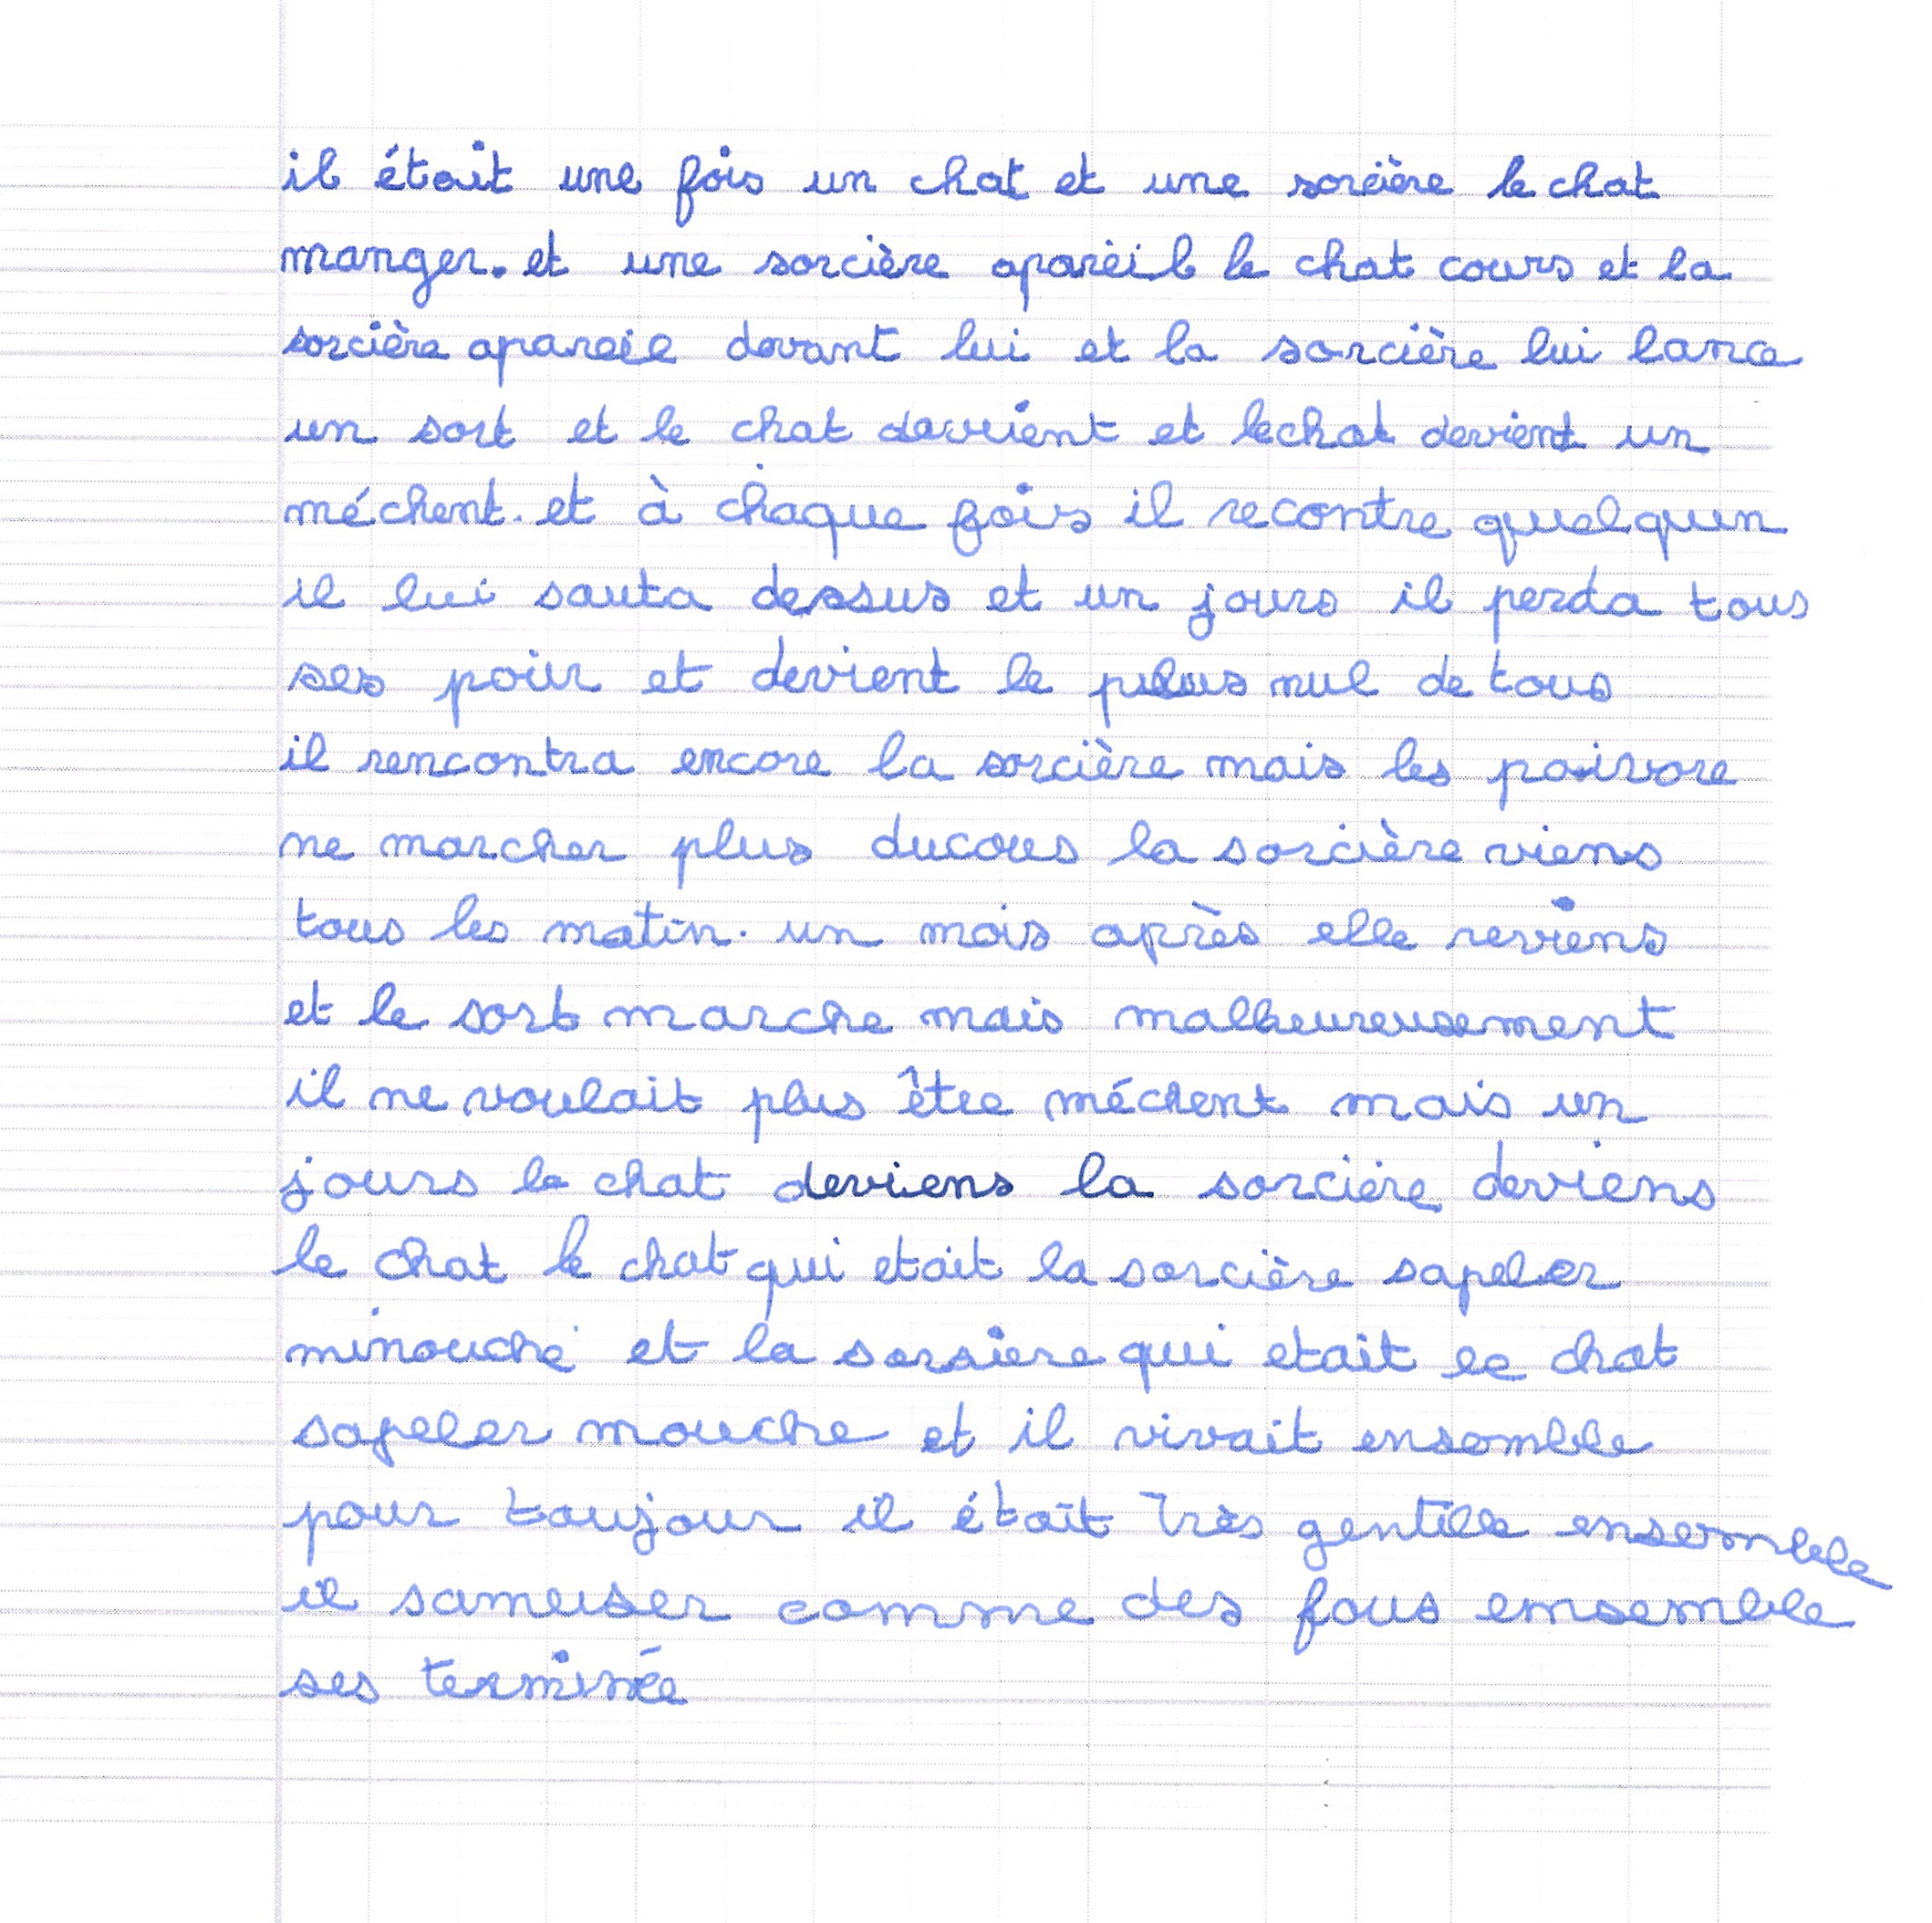 il était une fois un chat et une sorcière le chat
manger. et une sorcière apareil le chat cours et la
sorcière apareil devant lui et la sorcière lui lance
un sort et le chat devient et lechat devient un
méchent. et à chaque fois il recontre quelquun
il lui sauta dessus et un jours il perda tous
ses poir et devient le plus nul de tous
il rencontra encore la sorcière mais les poivore
ne marcher plus ducous la sorcière viens
tous les matin. un mois après elle reviens
et le sort marche mais malheureusement
il ne voulait plus être méchent mais un
jours le chat deviens la sorcière deviens
le chat le chat qui etait la sorcière sapeler
minouche et la sorsiere qui etait le chat
sapeler mouche et il vivait ensemble
pour toujour il était très gentille ensemble
il sameuser comme des fous emsemble
ses terminée